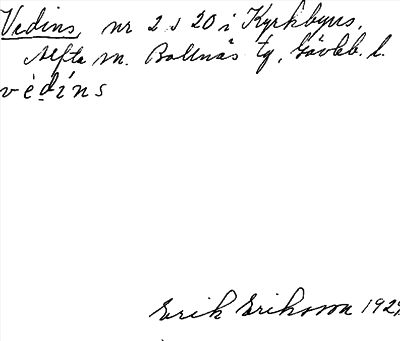 Vedins, nr 2 o 20 i Kyrkbyns,
Alfta sn. Bollnäs tg, Gävleb. l.
vèdíns
Erik Eriksson 1929